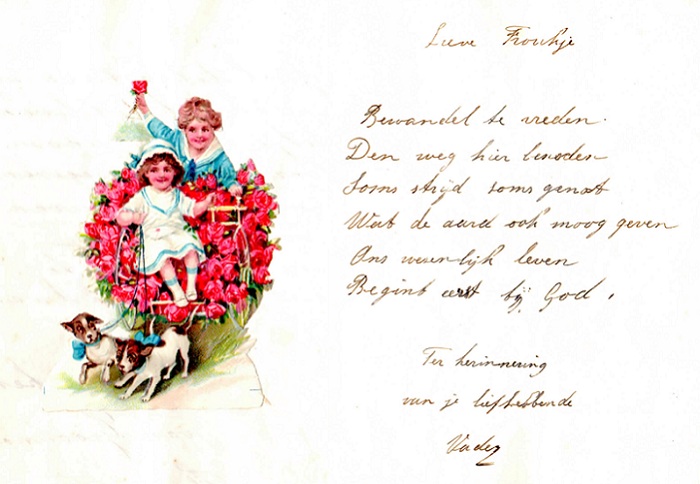 Lieve Froukje
Bewandel te vreden.
Den weg hier beneden
Soms strijd soms genot
Wat de aard ook moog geven
Ons waarlijk leven
Begint eerst bij God.
Ter herinnering
van je liefhebbende
Vader